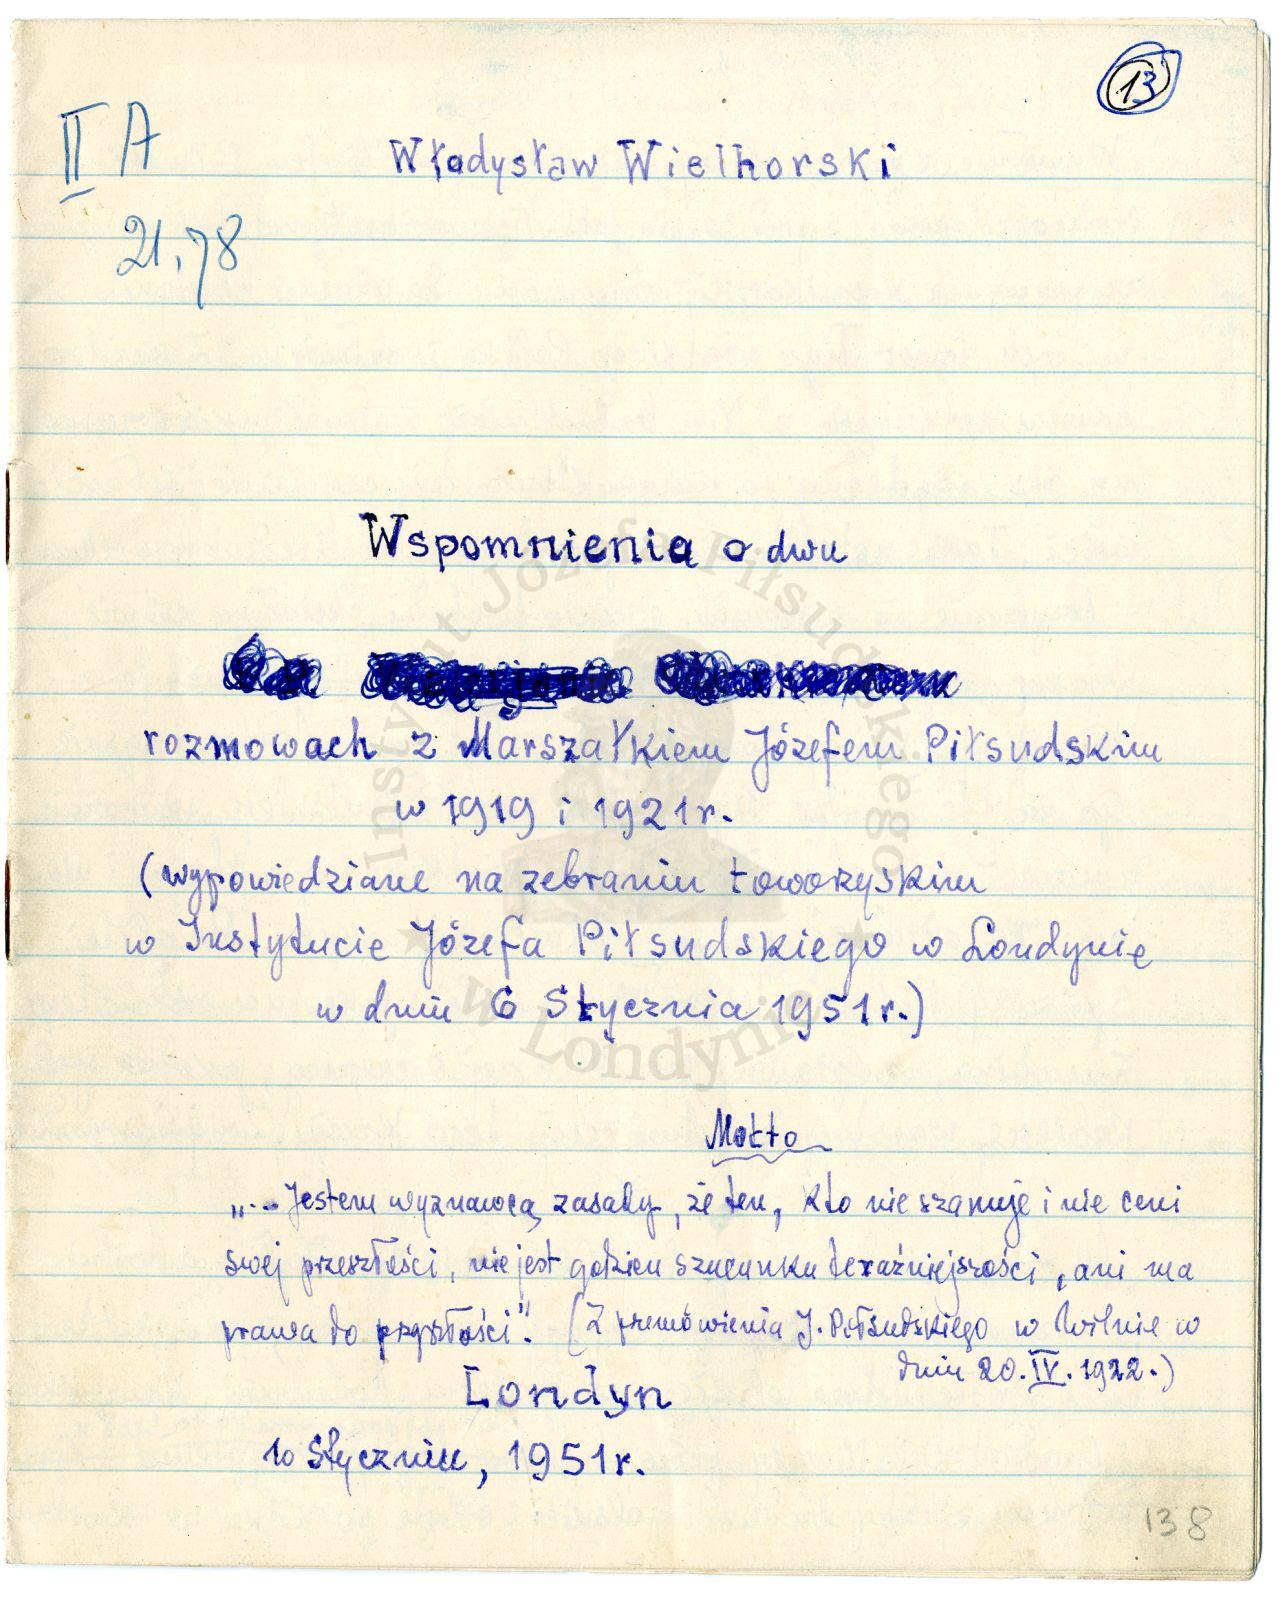 13
II A
21,78
Władysław Wielhorski
Wspomnienia o dwu
rozmowach z Marszałkiem Józefem Piłsudskim
w 1919 i 1921 r.
(wypowiedziane na zebraniu towarzyskim
w Instytucie Józefa Piłsudskiego w Londynie
w dniu 6 Stycznia 1951 r.)
Motto
„... Jestem wyznawcą zasady, że ten, kto nie szanuje i nie ceni
swej przeszłości, nie jest godzien szacunku teraźniejszości, ani ma
prawa do przyszłości". (Z przemówienia J. Piłsudskiego w Wilnie w
dniu 20.IV.1922.)
Londyn
10 Styczniu, 1951 r.
138
Instytut Józefa Piłsudskiego
w Londynie